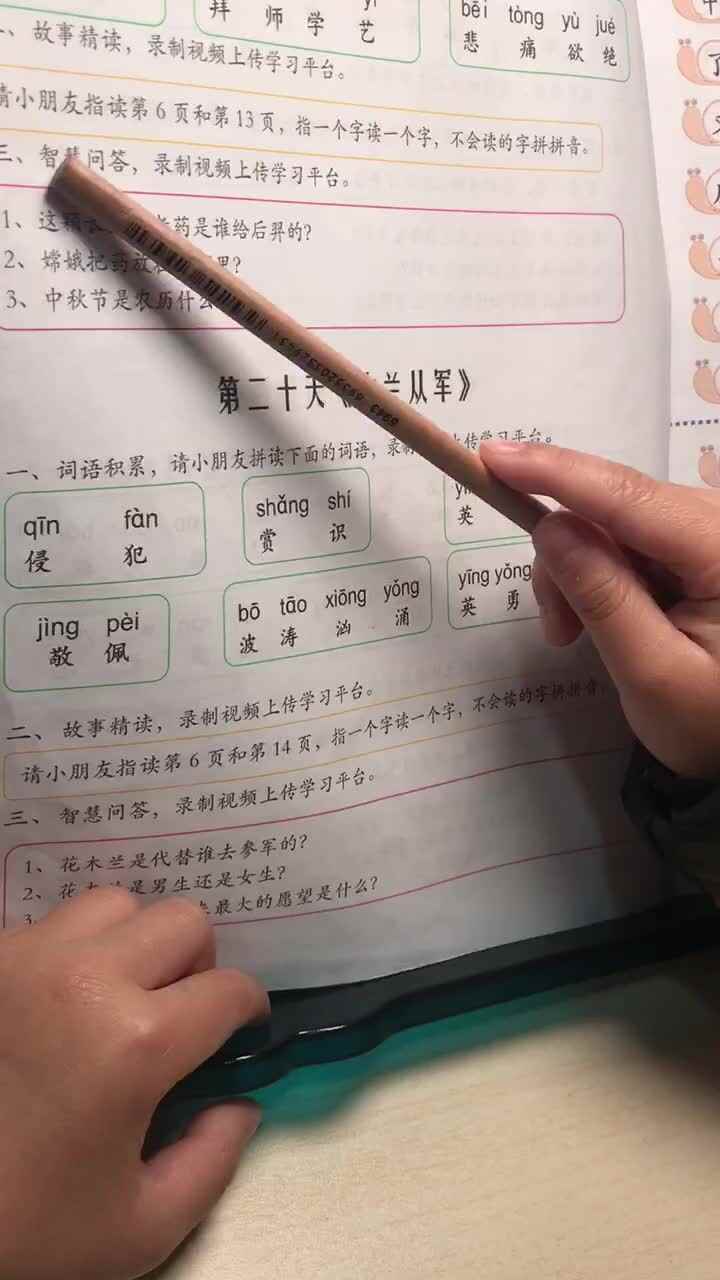 bēi tòng yù jué
拜 师 学 艺
悲 痛 欲 绝
故事精读，录制视频上传学习平台。
请小朋友指读第6页和第13页，指一个字读一个字，不会读的字拼拼音。
三、智慧问答，录制视频上传学习平台。
1、这颗 药是谁给后羿的？
2、嫦娥把药放 里？
3、中秋节是农历什么
第二十天《 兰从军》
一、词语积累，请小朋友拼读下面的词语，录 上传学习平台。
qīn fàn shǎng shí
侵 犯 赏 识 英
jìng pèi bō tāo xiōng yǒng yīng yǒng
敬 佩 波 涛 汹 涌 英 勇
二、故事精读，录制视频上传学习平台。
请小朋友指读第6页和第14页，指一个字读一个字，不会读的字拼拼音。
三、智慧问答，录制视频上传学习平台。
1、花木兰是代替谁去参军的？
2、花木兰是男生还是女生？
3、 最大的愿望是什么？